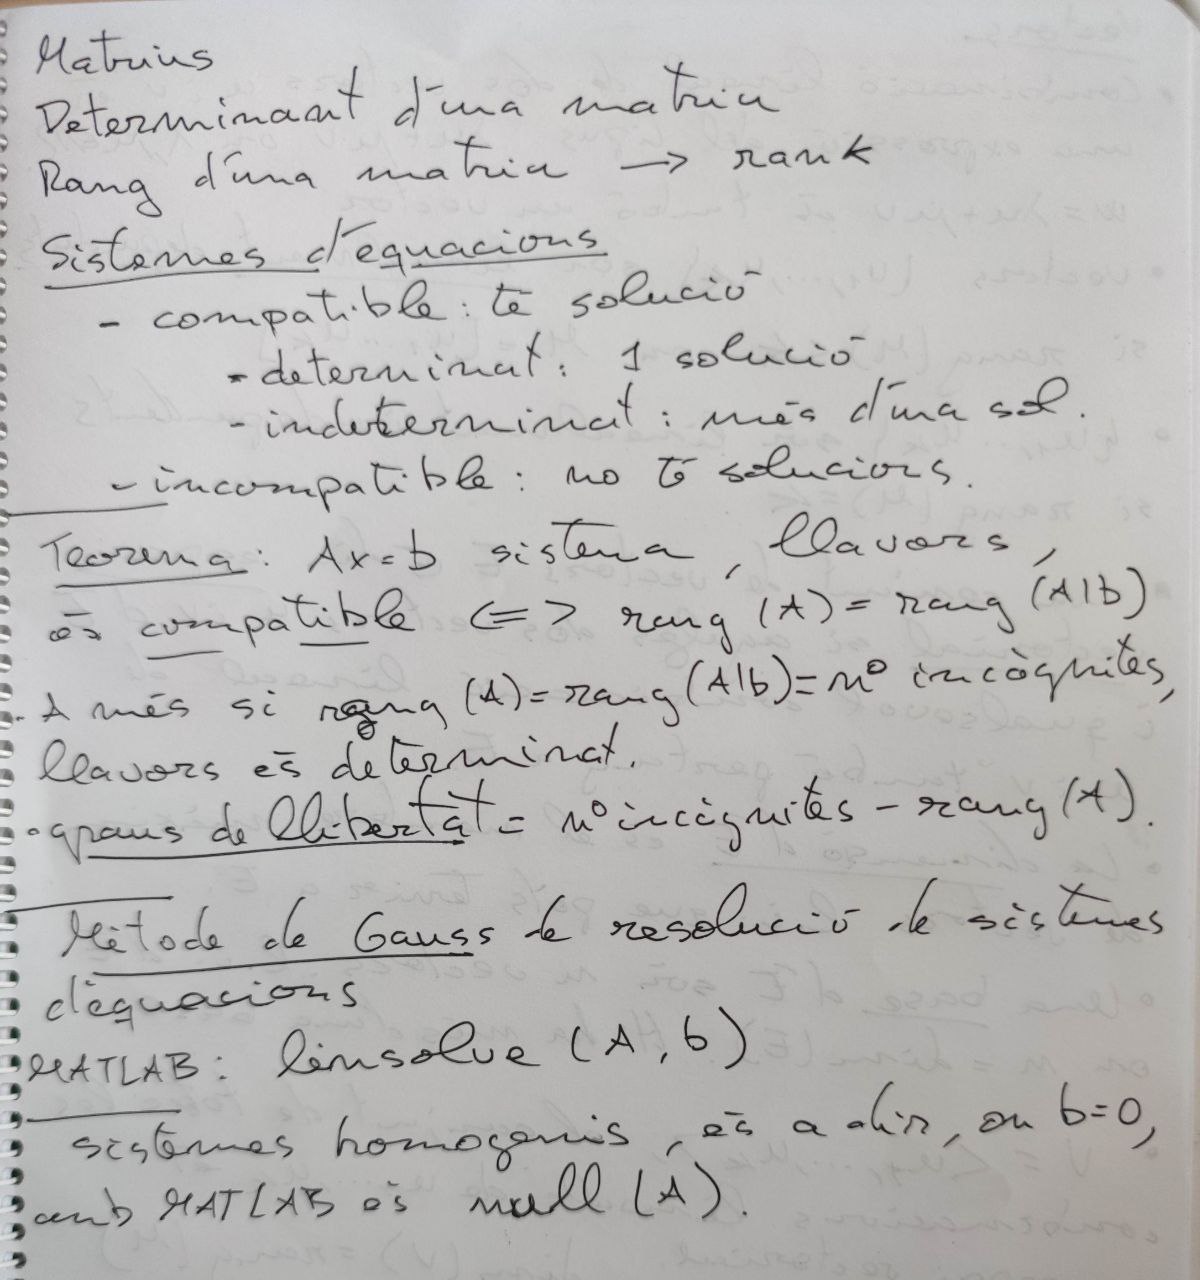 Matrius
Determinant d'una matriu
Rang d'una matriu → rank
Sistemes d'equacions
- compatible: té solució
- determinat: 1 solució
- indeterminat: més d'una sol.
- incompatible: no té solucions.
Teorema: Ax=b sistema, llavors,
és compatible <=> rang (A) = rang (A|b)
. A més si rang (A) = rang (A|b) = nº incògnites,
llavors és determinat.
• graus de llibertat = nº incògnites - rang (A).
Mètode de Gauss de resolució de sistemes
d'equacions
MATLAB: linsolve (A, b)
sistemes homogenis, és a dir, on b=0,
amb MATLAB és null (A).